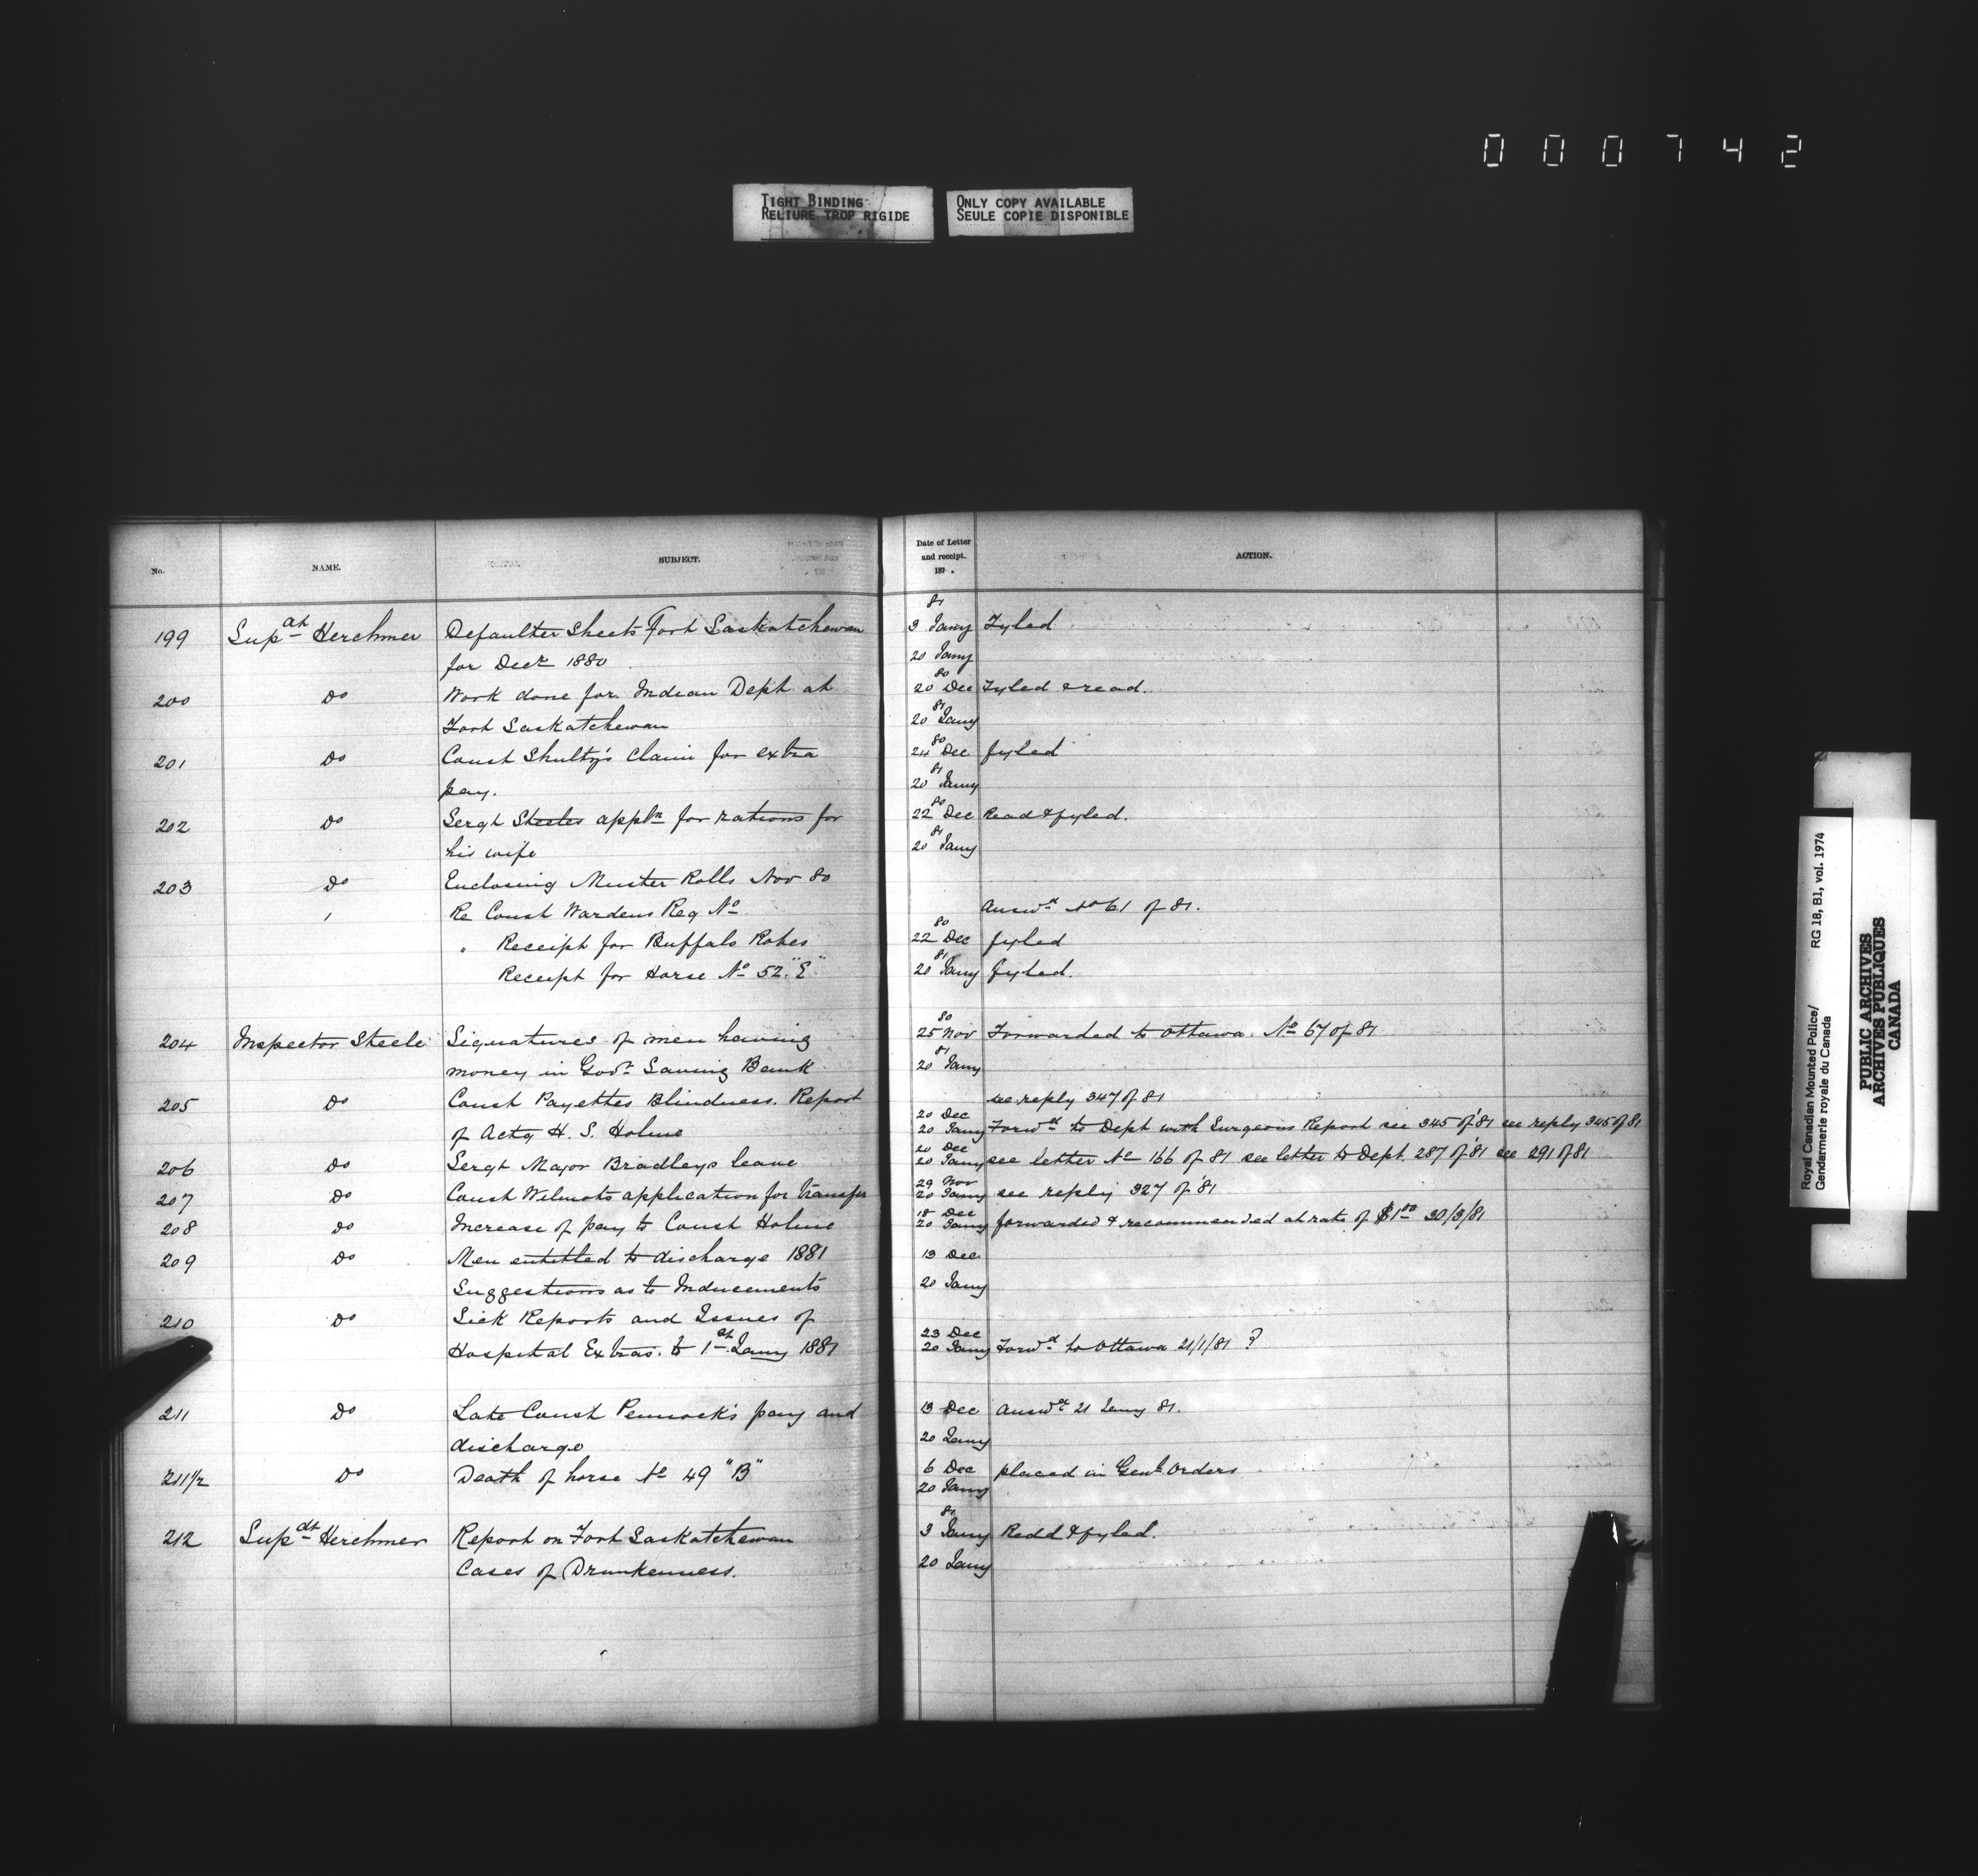 000742
TIGHT BINDING
RELIURE TROP RIGIDE
ONLY COPY AVAILABLE
SEULE COPIE DISPONIBLE
No. NAME. SUBJECT. Date of Letter and receipt. 187 . ACTION.
81
199 Supdt Herchmer Defaulter Sheets Fort Saskatchewan 3 Jany Fyled
for Decr 1880 20 Jany
80
200 Do Work done for Indian Dept at 20 Dec Fyled & read.
81
Fort Saskatchewan 20 Jany
80
201 Do Const Shultz's claim for extra 24 Dec fyled
81
pay. 20 Jany
80
202 Do Sergt Steeles appln for rations for 22 Dec Read & fyled.
81
his wife 20 Jany
203 Do Enclosing Muster Rolls Nov 80
Re Const Wardens Reg No Answd No 61 of 81.
80
" Receipt for Buffalo Robes 22 Dec fyled
81
Receipt for Horse No 52 "E" 20 Jany fyled.
80
204 Inspector Steele Signatures of men having 25 Nov Forwarded to Ottawa. No 67 of 81
81
money in Govt Saving Bank 20 Jany
205 Do Const Payettes Blindness. Report see reply 347 of 81
20 Dec
of Actg H. S. Holme 20 Jany Forwd to Dept with Surgeons Report see 345 of '81 see reply 345 of 81
20 Dec
206 Do Sergt Major Bradleys leave 20 Jany see letter No 166 of 81 see letter to Dept. 287 of '81 see 291 of 81
29 Nov
207 Do Const Wilmots application for transfer 20 Jany see reply 327 of '81
18 Dec
208 Do Increase of pay to Const Holme 20 Jany forwarded & recommended at rate of $1.00 30/3/81
209 Do Men entitled to discharge 1881 13 Dec
Suggestions as to Inducements 20 Jany
210 Do Sick Reports and Issues of 23 Dec
Hospital Extras. to 1st Jany 1881 20 Jany Forwd to Ottawa 21/1/81 ?
211 Do Late Const Pennock's pay and 13 Dec Answd 21 Jany 81.
discharge 20 Jany
211 1/2 Do Death of horse No 49 "B" 6 Dec placed in Genl Orders
20 Jany
81
212 Supdt Herchmer Report on Fort Saskatchewan 3 Jany Redd & fyled.
Cases of Drunkenness. 20 Jany
Royal Canadian Mounted Police/ RG 18, B1, vol. 1974
Gendarmerie royale du Canada
PUBLIC ARCHIVES
ARCHIVES PUBLIQUES
CANADA